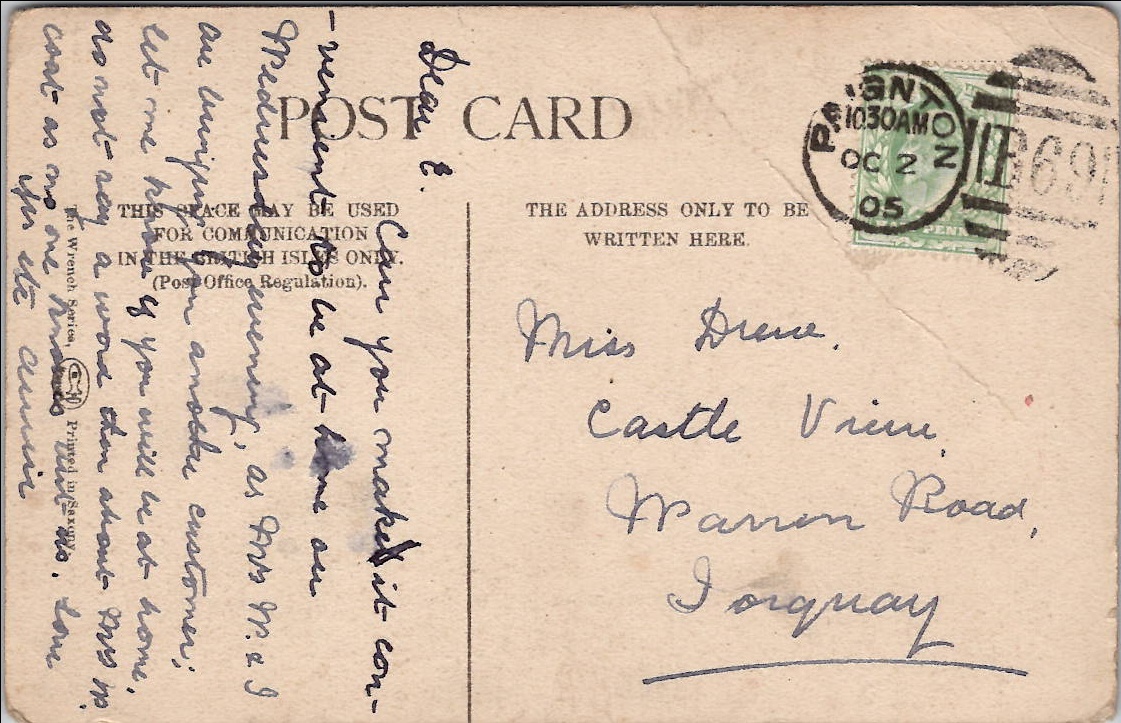 POST CARD
THIS SPACE MAY BE USED
FOR COMMUNICATION
IN THE BRITISH ISLES ONLY.
(Post Office Regulation).
THE ADDRESS ONLY TO BE
WRITTEN HERE.
PAIGNTON
10.30AM
OC 2
05
B69
PENNY
Miss Drew.
Castle View,
Warren Road,
Torquay
Dear E.
Can you make it con-
-venient to be at home on
Wednesday evening, as Mrs W. & I
are bringing you another customer;
let me know if you will be at home,
do not say a word then about Mrs W.
coat as no one knows but us. Love
The Wrench Series,
Printed in Saxony